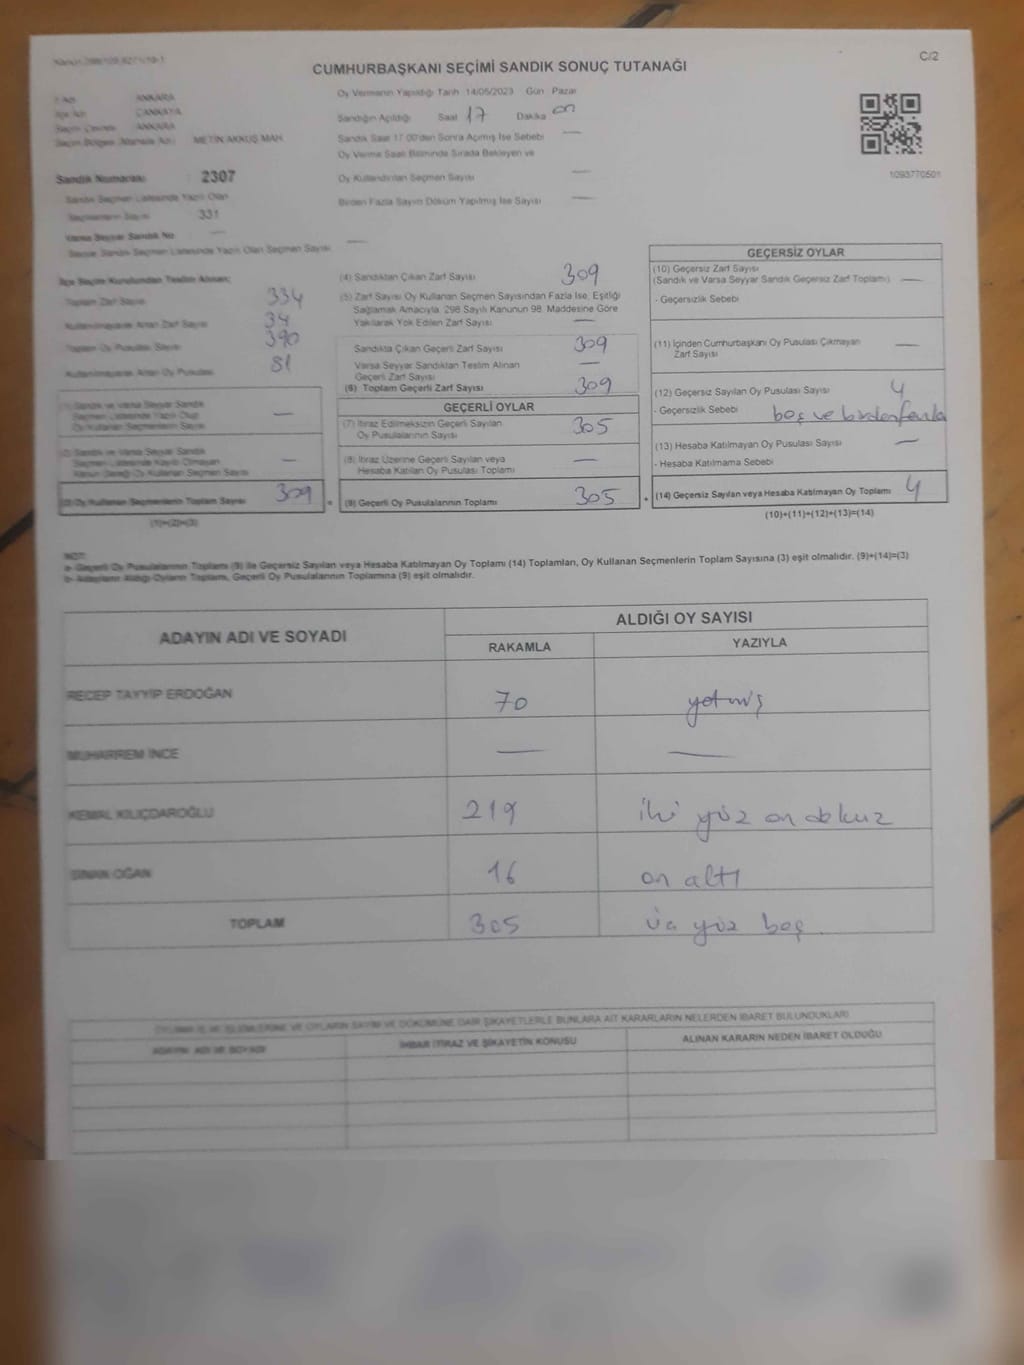 C/2
CUMHURBAŞKANI SEÇİMİ SANDIK SONUÇ TUTANAĞI
İl Adı ANKARA
İlçe Adı ÇANKAYA
Seçim Çevresi ANKARA
Seçim Bölgesi (Mahalle Adı) METİN AKKUŞ MAH.
Sandık Numarası : 2307
Sandık Seçmen Listesinde Yazılı Olan
Seçmenlerin Sayısı 331
Varsa Seyyar Sandık No —
Seyyar Sandık Seçmen Listesinde Yazılı Olan Seçmen Sayısı —
Oy Vermenin Yapıldığı Tarih 14/05/2023 Gün Pazar
Sandığın Açıldığı Saat 17 Dakika on
Sandık Saat 17.00'den Sonra Açımış İse Sebebi —
Oy Verme Saati Bitiminde Sırada Bekleyen ve
Oy Kullandırılan Seçmen Sayısı —
Birden Fazla Sayım Döküm Yapılmış İse Sayısı —
1093770501
İlçe Seçim Kurulundan Teslim Alınan;
Toplam Zarf Sayısı 334
Kullanılmayarak Artan Zarf Sayısı 34
Toplam Oy Pusulası Sayısı 390
Kullanılmayarak Artan Oy Pusulası 81
(1) Sandık ve Varsa Seyyar Sandık
Seçmen Listesinde Yazılı Olup
Oy Kullanan Seçmenlerin Sayısı —
(2) Sandık ve Varsa Seyyar Sandık
Seçmen Listesinde Kayıtlı Olmayan
Kanun Gereği Oy Kullanan Seçmen Sayısı —
(3) Oy Kullanan Seçmenlerin Toplam Sayısı 309
(1)+(2)=(3)
(4) Sandıktan Çıkan Zarf Sayısı 309
(5) Zarf Sayısı Oy Kullanan Seçmen Sayısından Fazla İse, Eşitliği
Sağlamak Amacıyla, 298 Sayılı Kanunun 98. Maddesine Göre
Yakılarak Yok Edilen Zarf Sayısı —
Sandıkta Çıkan Geçerli Zarf Sayısı 309
Varsa Seyyar Sandıktan Teslim Alınan
Geçerli Zarf Sayısı —
(6) Toplam Geçerli Zarf Sayısı 309
GEÇERLİ OYLAR
(7) İtiraz Edilmeksizin Geçerli Sayılan
Oy Pusulalarının Sayısı 305
(8) İtiraz Üzerine Geçerli Sayılan veya
Hesaba Katılan Oy Pusulası Toplamı —
= (9) Geçerli Oy Pusulalarının Toplamı 305
GEÇERSİZ OYLAR
(10) Geçersiz Zarf Sayısı
(Sandık ve Varsa Seyyar Sandık Geçersiz Zarf Toplamı) —
- Geçersizlik Sebebi
(11) İçinden Cumhurbaşkanı Oy Pusulası Çıkmayan
Zarf Sayısı —
(12) Geçersiz Sayılan Oy Pusulası Sayısı 4
- Geçersizlik Sebebi boş ve birden fazla
(13) Hesaba Katılmayan Oy Pusulası Sayısı —
- Hesaba Katılmama Sebebi
+ (14) Geçersiz Sayılan veya Hesaba Katılmayan Oy Toplamı 4
(10)+(11)+(12)+(13)=(14)
NOT:
a- Geçerli Oy Pusulalarının Toplamı (9) ile Geçersiz Sayılan veya Hesaba Katılmayan Oy Toplamı (14) Toplamları, Oy Kullanan Seçmenlerin Toplam Sayısına (3) eşit olmalıdır. (9)+(14)=(3)
b- Adayların Aldığı Oyların Toplamı, Geçerli Oy Pusulalarının Toplamına (9) eşit olmalıdır.
ADAYIN ADI VE SOYADI ALDIĞI OY SAYISI
RAKAMLA YAZIYLA
RECEP TAYYİP ERDOĞAN 70 yetmiş
MUHARREM İNCE — —
KEMAL KILIÇDAROĞLU 219 iki yüz on dokuz
SİNAN OĞAN 16 on altı
TOPLAM 305 üç yüz beş
OYLAMA İŞ VE İŞLEMLERİNE VE OYLARIN SAYIM VE DÖKÜMÜNE DAİR ŞİKAYETLERLE BUNLARA AİT KARARLARIN NELERDEN İBARET BULUNDUKLARI
ADAYIN ADI VE SOYADI İHBAR İTİRAZ VE ŞİKAYETİN KONUSU ALINAN KARARIN NEDEN İBARET OLDUĞU